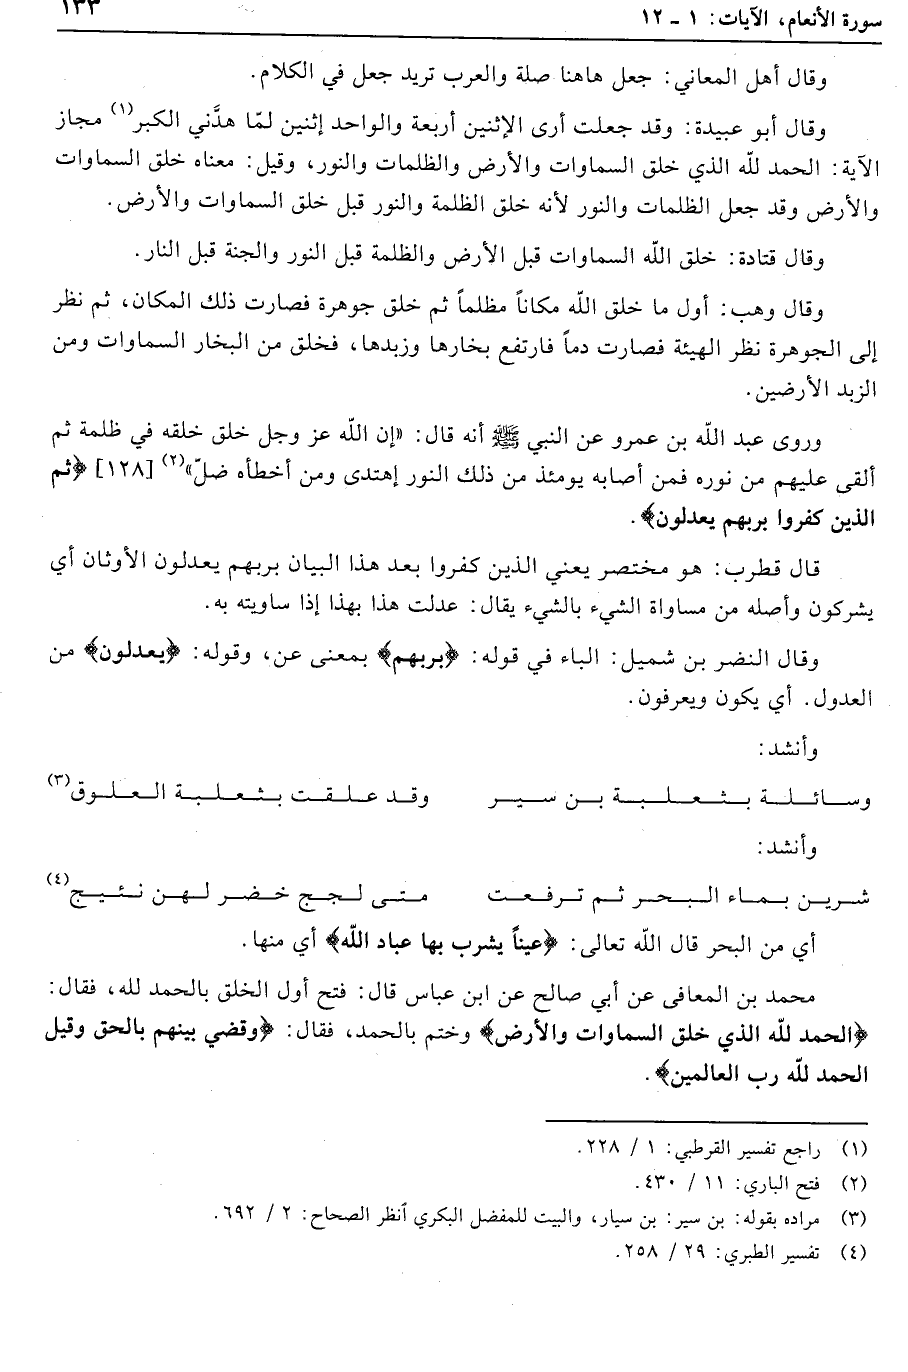 سورة الأنعام، الآيات: ١ ـ ١٢ ١٣٣
وقال أهل المعاني: جعل هاهنا صلة والعرب تريد جعل في الكلام.
وقال أبو عبيدة: وقد جعلت أرى الإثنين أربعة والواحد إثنين لمّا هدَّني الكبر(١) مجاز
الآية: الحمد لله الذي خلق السماوات والأرض والظلمات والنور، وقيل: معناه خلق السماوات
والأرض وقد جعل الظلمات والنور لأنه خلق الظلمة والنور قبل خلق السماوات والأرض.
وقال قتادة: خلق الله السماوات قبل الأرض والظلمة قبل النور والجنة قبل النار.
وقال وهب: أول ما خلق الله مكاناً مظلماً ثم خلق جوهرة فصارت ذلك المكان، ثم نظر
إلى الجوهرة نظر الهيئة فصارت دماً فارتفع بخارها وزبدها، فخلق من البخار السماوات ومن
الزبد الأرضين.
وروى عبد الله بن عمرو عن النبي ﷺ أنه قال: «إن الله عز وجل خلق خلقه في ظلمة ثم
ألقى عليهم من نوره فمن أصابه يومئذ من ذلك النور إهتدى ومن أخطأه ضلّ»(٢) [١٢٨] ﴿ثم
الذين كفروا بربهم يعدلون﴾.
قال قطرب: هو مختصر يعني الذين كفروا بعد هذا البيان بربهم يعدلون الأوثان أي
يشركون وأصله من مساواة الشيء بالشيء يقال: عدلت هذا بهذا إذا ساويته به.
وقال النضر بن شميل: الباء في قوله: ﴿بربهم﴾ بمعنى عن، وقوله: ﴿يعدلون﴾ من
العدول. أي يكون ويعرفون.
وأنشد:
وسائلة بثعلبة بن سير وقد علقت بثعلبة العلوق(٣)
وأنشد:
شربن بماء البحر ثم ترفعت متى لجج خضر لهن نئيج(٤)
أي من البحر قال الله تعالى: ﴿عيناً يشرب بها عباد الله﴾ أي منها.
محمد بن المعافى عن أبي صالح عن ابن عباس قال: فتح أول الخلق بالحمد لله، فقال:
﴿الحمد لله الذي خلق السماوات والأرض﴾ وختم بالحمد، فقال: ﴿وقضي بينهم بالحق وقيل
الحمد لله رب العالمين﴾.
(١) راجع تفسير القرطبي: ١ / ٢٢٨.
(٢) فتح الباري: ١١ / ٤٣٠.
(٣) مراده بقوله: بن سير: بن سيار، والبيت للمفضل البكري أنظر الصحاح: ٢ / ٦٩٢.
(٤) تفسير الطبري: ٢٩ / ٢٥٨.